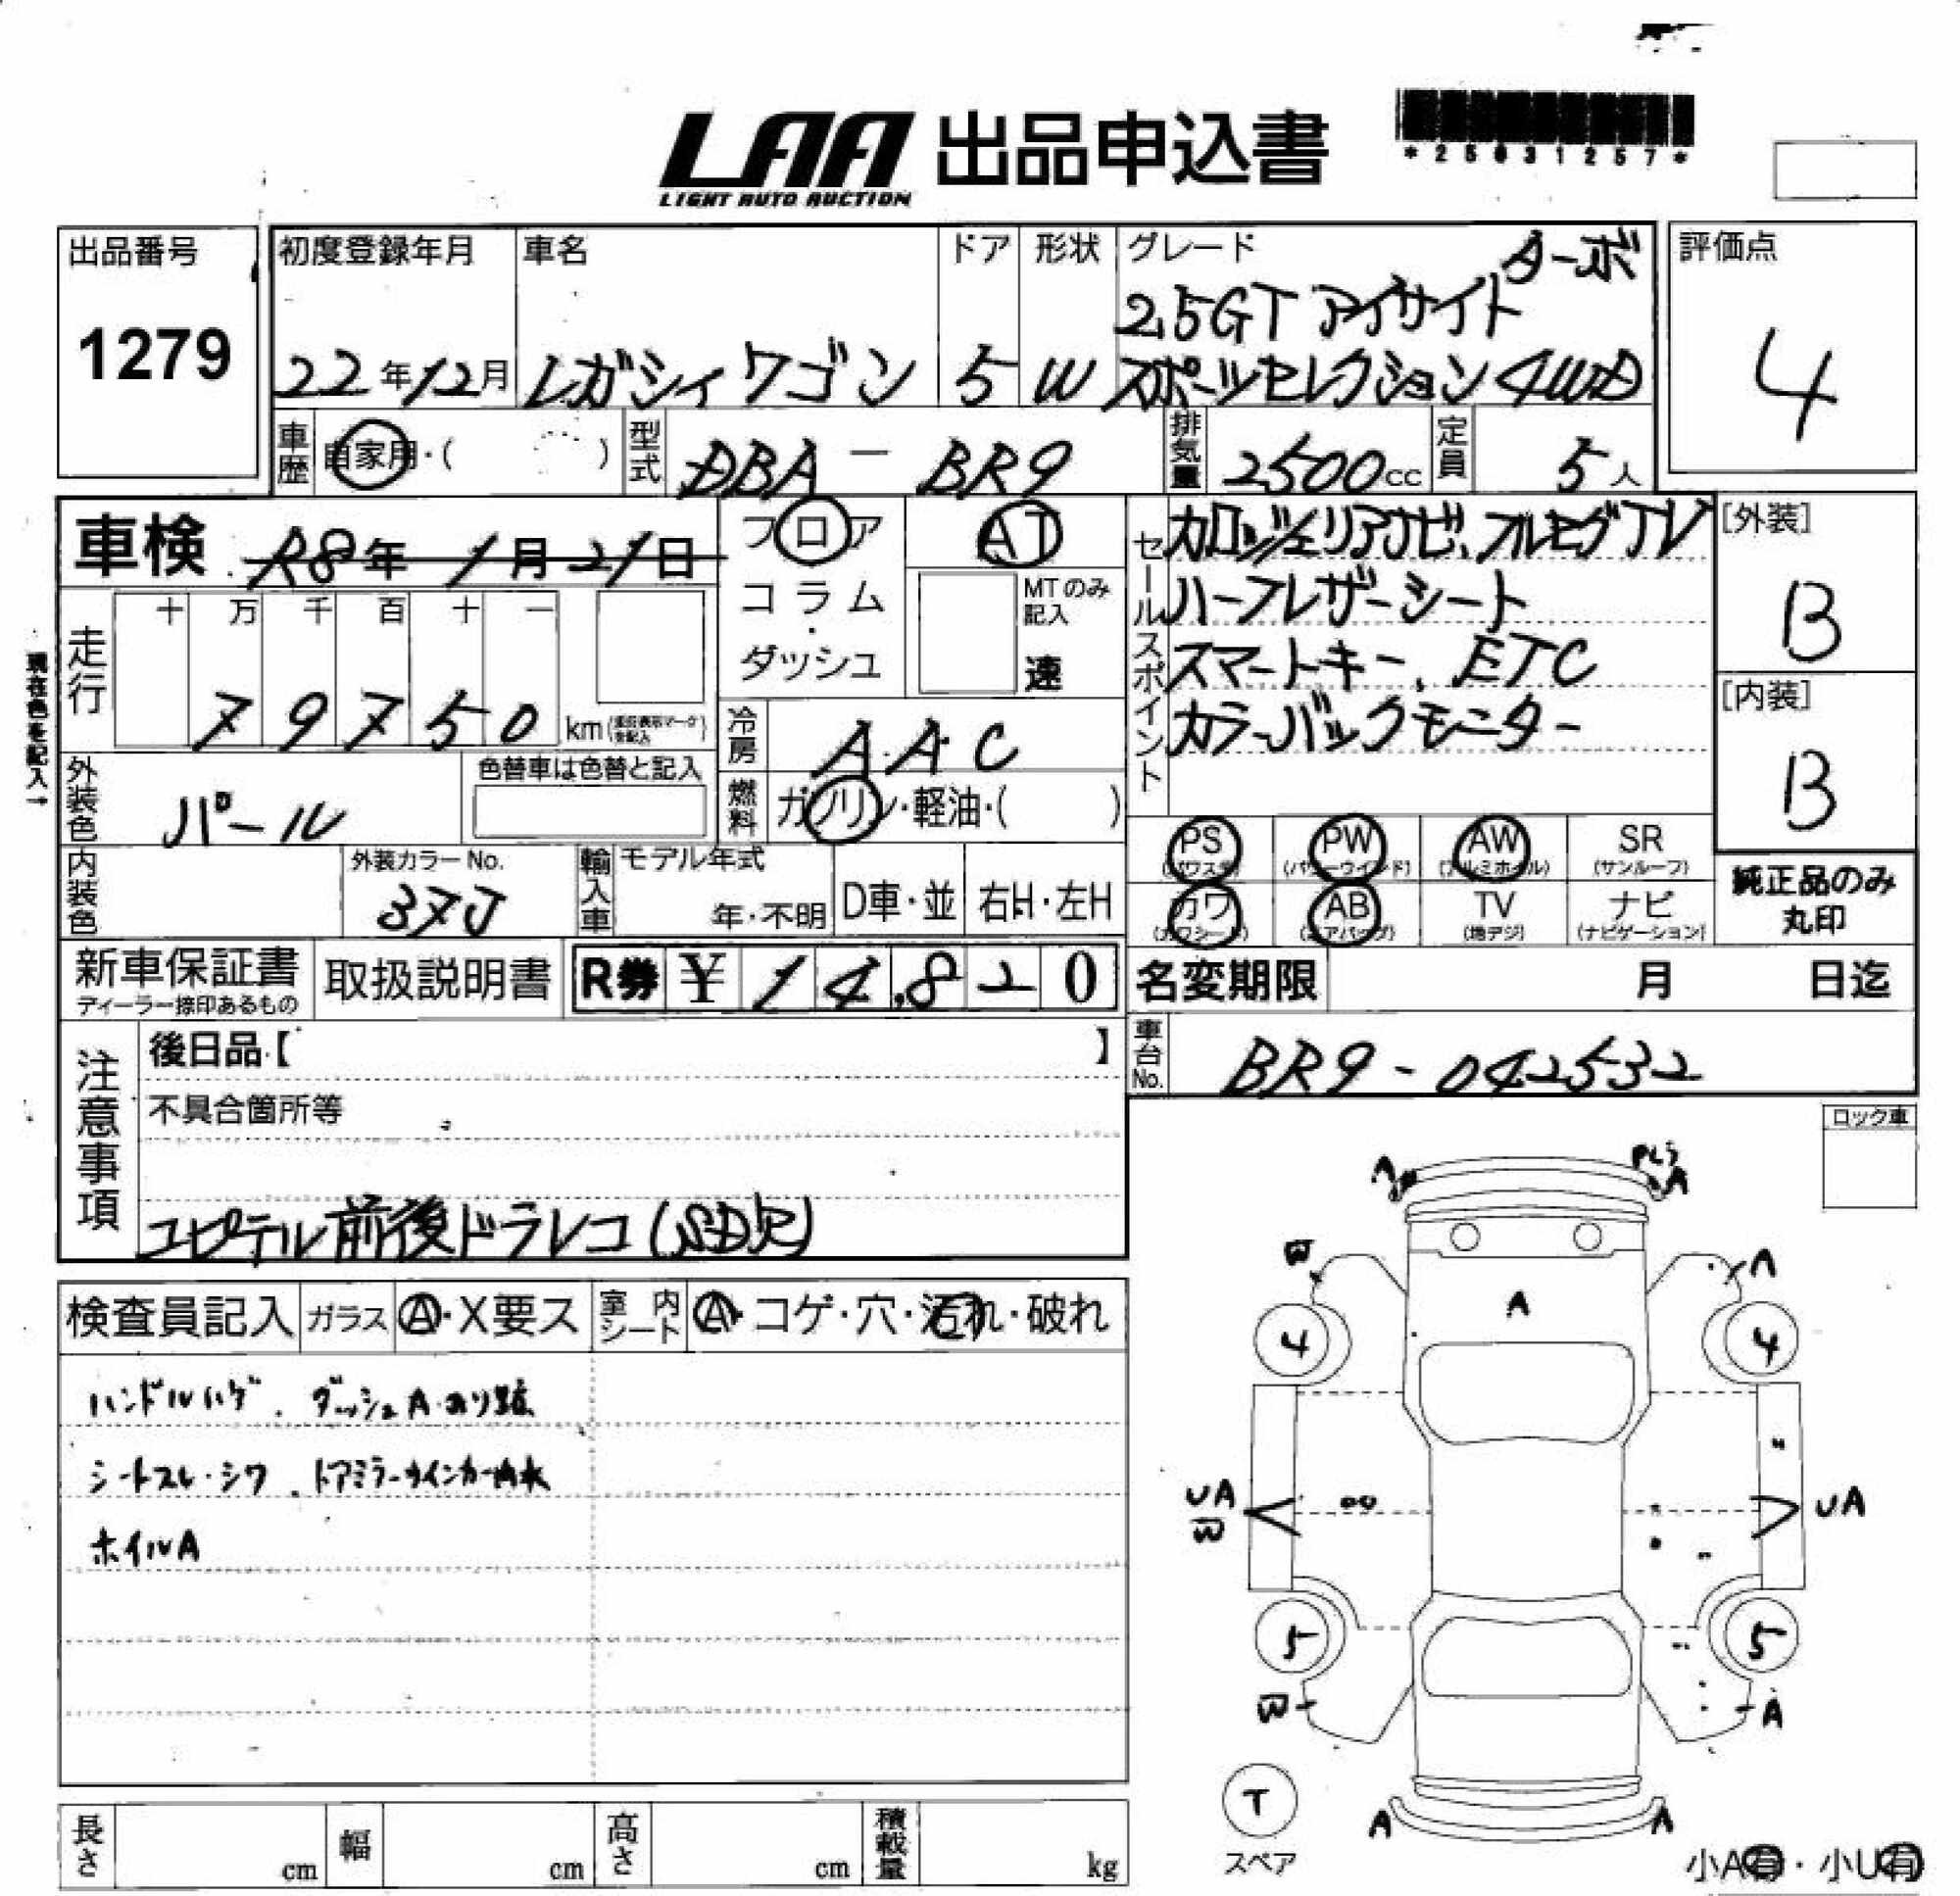 LAA 出品申込書
LIGHT AUTO AUCTION
*25031257*
出品番号
1279
初度登録年月
22年12月
車名
レガシィワゴン
ドア
5
形状
W
グレード
ターボ
2.5GT アイサイト
スポーツセレクション 4WD
評価点
4
車歴
自家用・( )
型式
DBA - BR9
排気量
2500cc
定員
5人
車検 R8年1月21日
フロア
コラム
・
ダッシュ
AT
MTのみ
記入
速
セールスポイント
カロッジェリアナビ、フルセグTV
ハーフレザーシート
スマートキー、ETC
カラーバックモニター
[外装]
B
[内装]
B
現在色を記入→
走行
十 万 千 百 十 一
79750 km
冷房
A.A.C
燃料
ガソリン・軽油・( )
外装色
パール
色替車は色替と記入
内装色
外装カラーNo.
37J
輸入車
モデル年式
年・不明
D車・並
右H・左H
PS
(パワステ)
PW
(パワーウインド)
AW
(アルミホイル)
SR
(サンルーフ)
カワ
(カワシート)
AB
(エアバッグ)
TV
(地デジ)
ナビ
(ナビゲーション)
純正品のみ
丸印
新車保証書
ディーラー捺印あるもの
取扱説明書
R券 ¥14,820
名変期限 月 日迄
車台No.
BR9-042532
注意事項
後日品【 】
不具合箇所等
ユピテル前後ドラレコ(SD欠)
ロック車
検査員記入
ガラス
A・X要ス
室内シート
A・コゲ・穴・汚れ・破れ
ハンドルハゲ、ダッシュA・のり跡
シートスレ・シワ、ドアミラーウインカー内水
ホイルA
A
A
W
A
A
4
4
UA
W
UA
5
5
W
A
T
スペア
A
A
小A有・小U有
長さ cm
幅 cm
高さ cm
積載量 kg